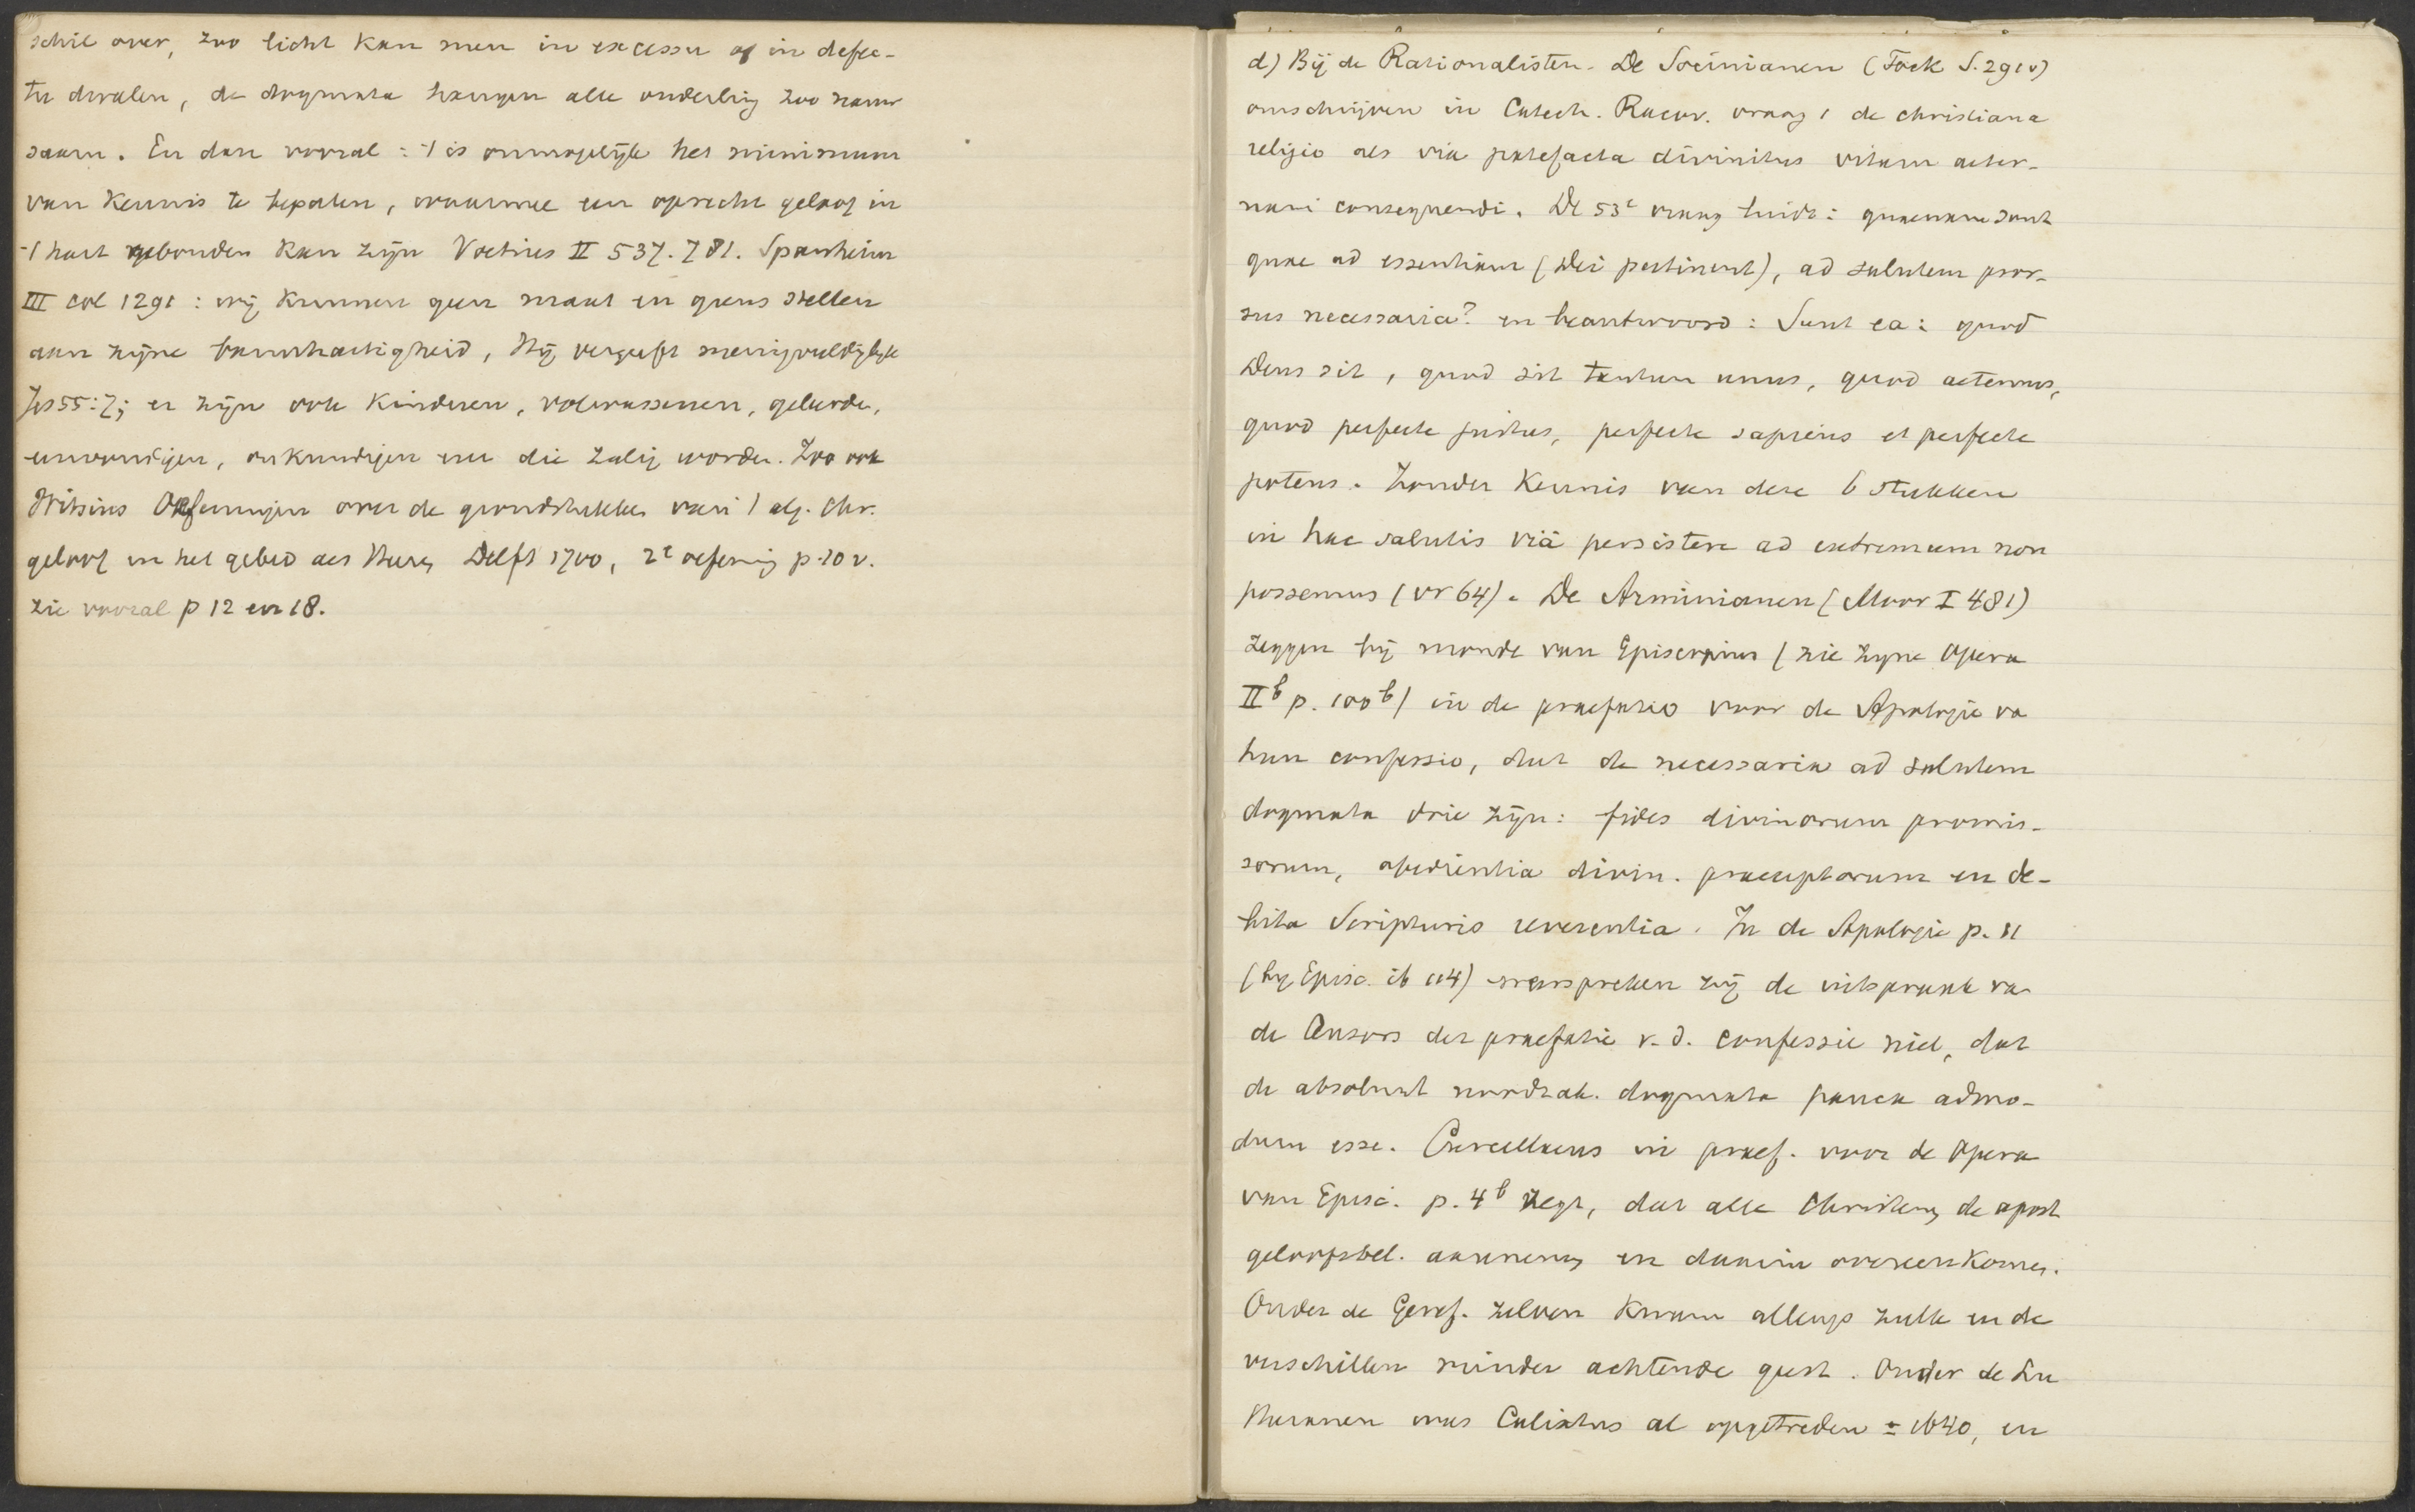 schil over, zoo licht kan men in excessu of in defec-
tu dwalen, de dogmata hangen alle onderling zoo nauw
saam. En dan vooral: 't is onmogelijk het minimum
van kennis te bepalen, waarmee een oprecht geloof in
't hart gebonden kan zijn Voetius II 537. 781. Spanheim
III col 1291: wij kunnen geen maat en grens stellen
aan zijne barmhartigheid, Hij vergeeft menigvuldiglijk
Jes 55:7; er zijn ook kinderen, volwassenen, geleerde,
eenvoudigen, onkundigen enz die zalig worden. Zoo ook
Witsius Oefeningen over de grondstukken van 't alg. Chr.
geloof en het gebed des Heeren Delft 1700, 2e oefening p. 10 v.
zie vooral p 12 en 18.
d) Bij de Rationalisten. De Socinianen (Fock S. 291 v)
omschrijven in Catech. Racov. vraag 1 de christiana
religio als via patefacta divinitus vitam aeter-
nam consequendi. De 53e vraag luidt: quaenam sunt
quae ad essentiam (Dei pertinent), ad salutem pror-
sus necessaria? en beantwoord: Sunt ea: quod
Deus sit, quod sit tantum unus, quod aeternus,
quod perfecte justus, perfecte sapiens et perfecte
potens. Zonder kennis van deze 6 stukken
in hac salutis viâ persistere ad extremum non
possemus (vr 64). De Arminianen (Moor I 481)
zeggen bij monde van Episcopius (zie zijne Opera
II b p. 100 b) in de praefatio voor de Apologie va
hun confessio, dat de necessaria ad salutem
dogmata drie zijn: fides divinorum promis-
sorum, obedientia divin. praeceptorum en de-
bita Scripturis reverentia. In de Apologie p. 11
(bij Episc. ib 114) weerspreken zij de uitspraak va
de Censors der praefatie v. d. confessie niet, dat
de absoluut noodzak. dogmata pauca admo-
dum esse. Curcellaeus in praef. voor de Opera
van Episc. p. 4 b zegt, dat alle Christenen de apost
geloofsbel. aannemen en daarin overeenkomen.
Onder de Geref. zelven kwam allengs zulk een de
verschillen minder achtende geest. Onder de Lu
theranen was Calixtus al opgetreden ± 1640, en